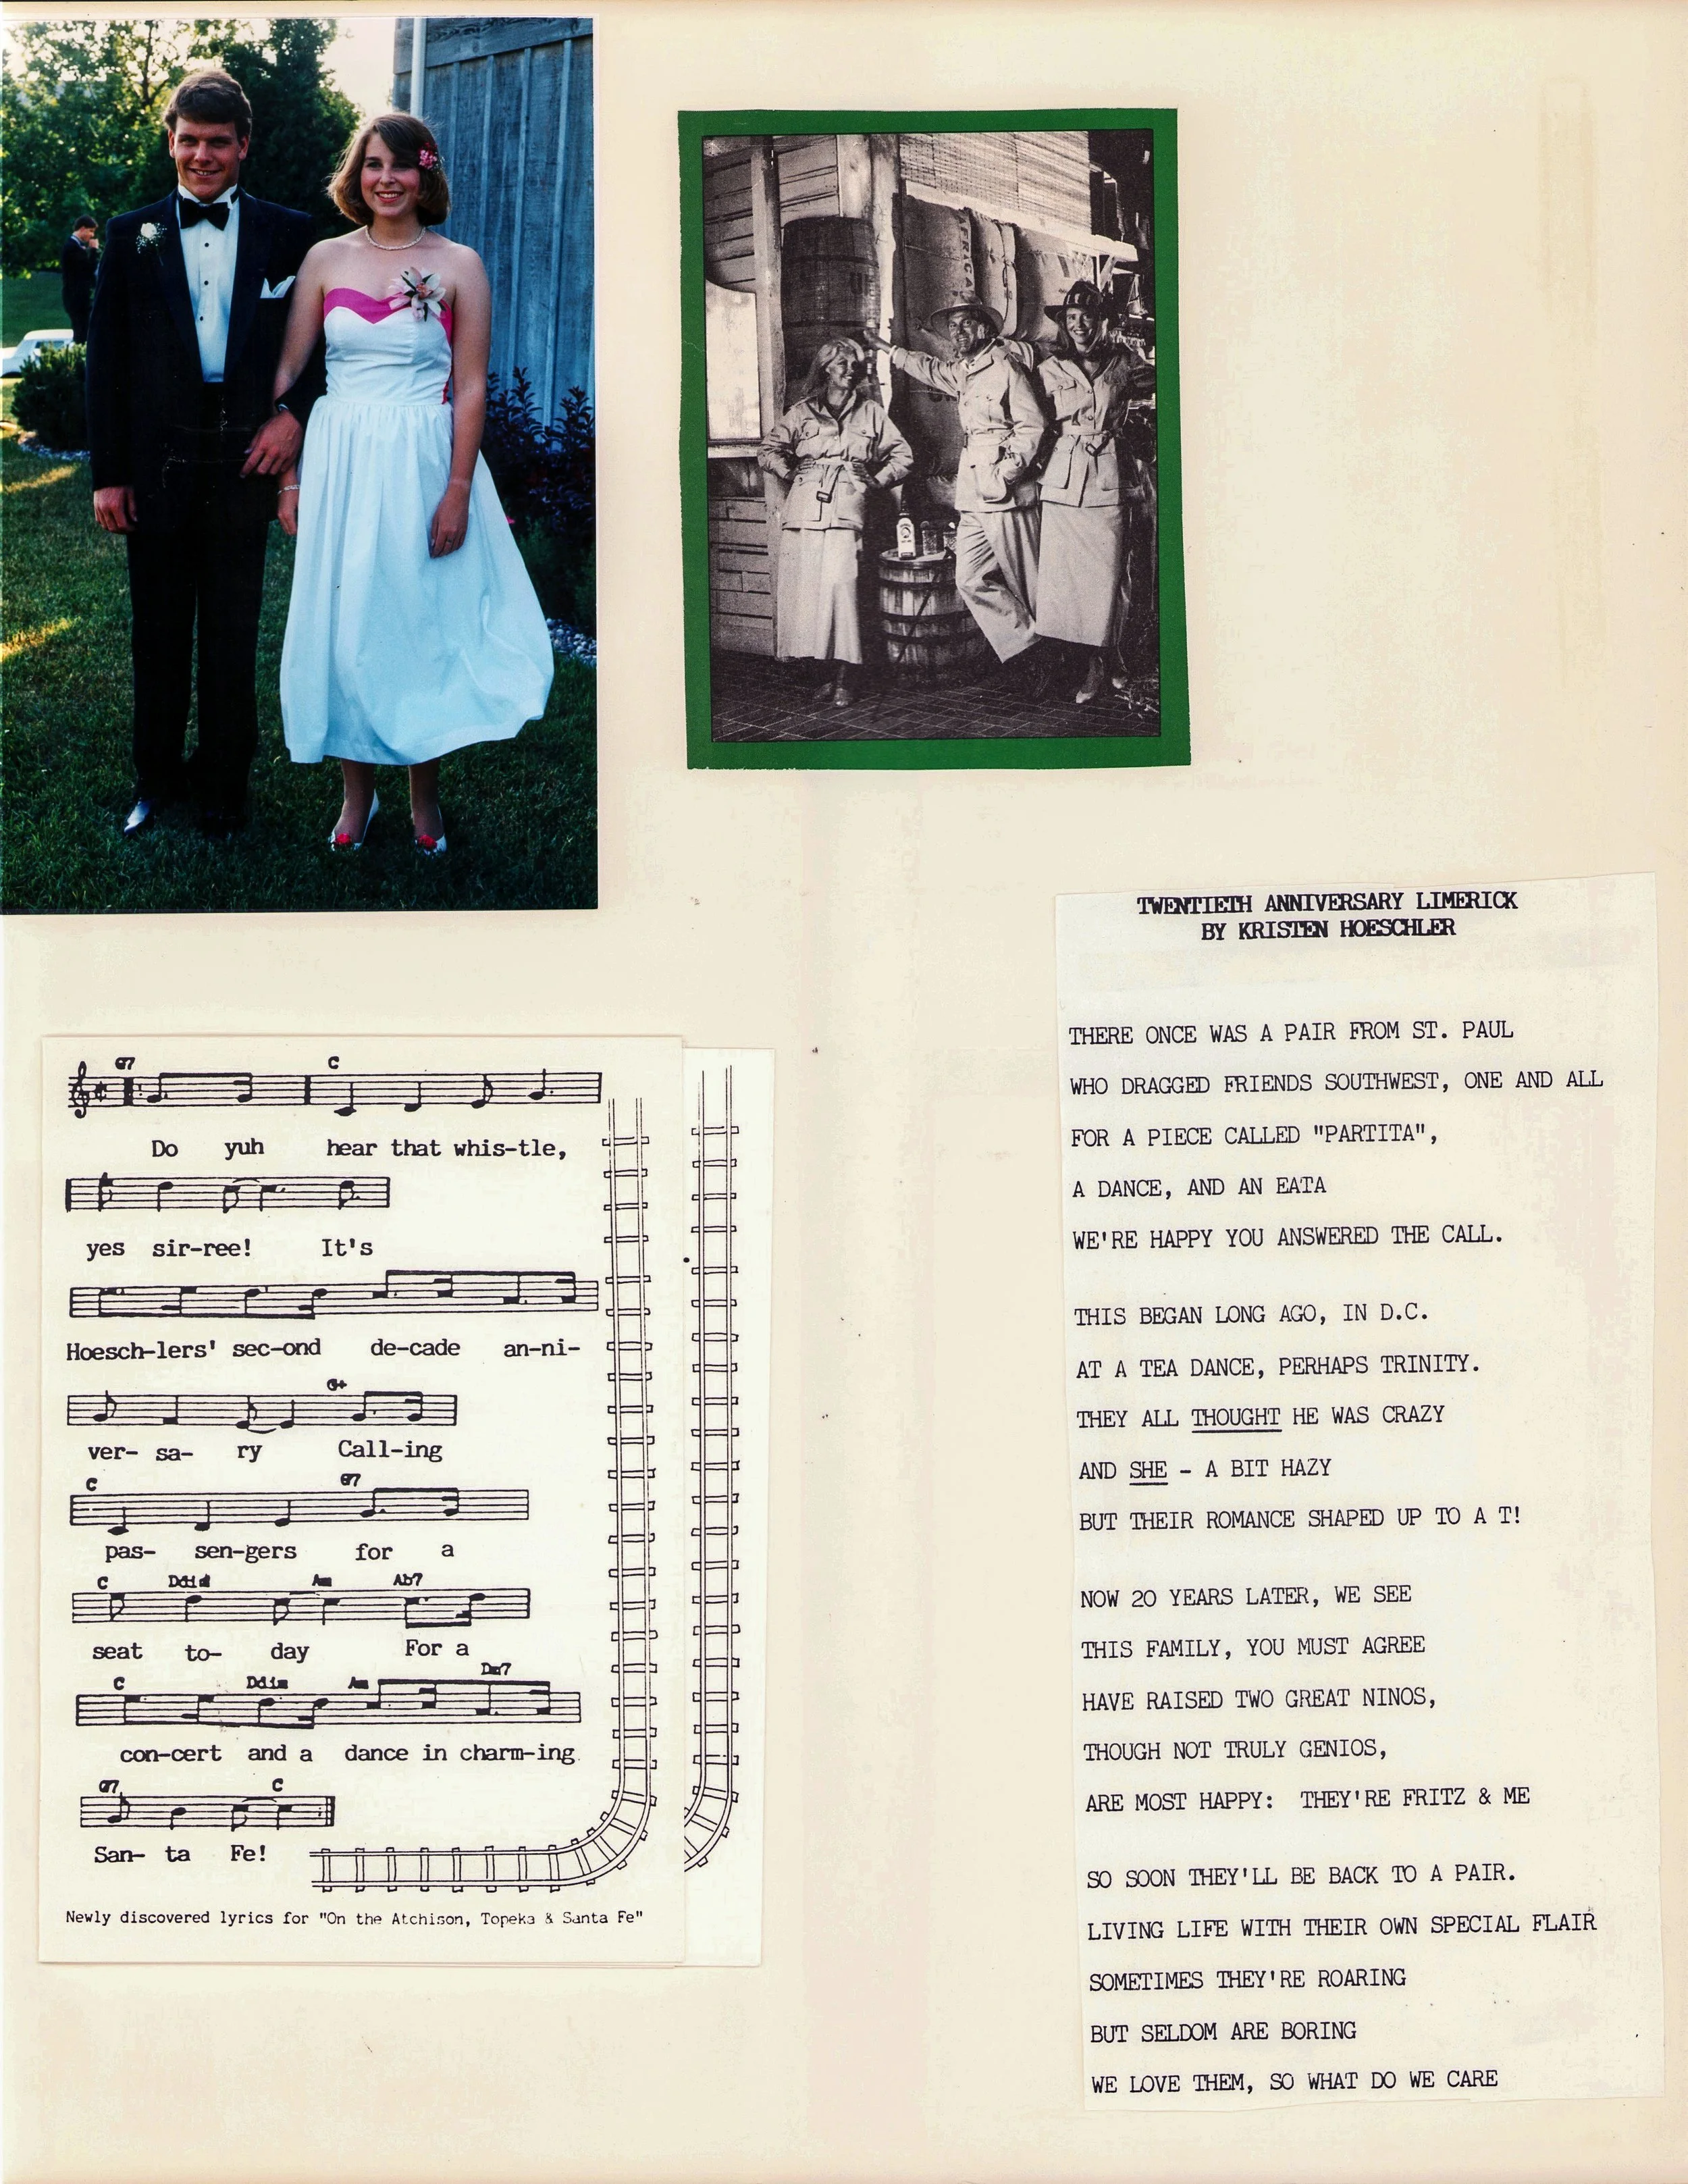 TWENTIETH ANNIVERSARY LIMERICK
BY KRISTEN HOESCHLER
THERE ONCE WAS A PAIR FROM ST. PAUL
WHO DRAGGED FRIENDS SOUTHWEST, ONE AND ALL
FOR A PIECE CALLED "PARTITA",
A DANCE, AND AN EATA
WE'RE HAPPY YOU ANSWERED THE CALL.
THIS BEGAN LONG AGO, IN D.C.
AT A TEA DANCE, PERHAPS TRINITY.
THEY ALL THOUGHT HE WAS CRAZY
AND SHE - A BIT HAZY
BUT THEIR ROMANCE SHAPED UP TO A T!
NOW 20 YEARS LATER, WE SEE
THIS FAMILY, YOU MUST AGREE
HAVE RAISED TWO GREAT NINOS,
THOUGH NOT TRULY GENIOS,
ARE MOST HAPPY: THEY'RE FRITZ & ME
SO SOON THEY'LL BE BACK TO A PAIR.
LIVING LIFE WITH THEIR OWN SPECIAL FLAIR
SOMETIMES THEY'RE ROARING
BUT SELDOM ARE BORING
WE LOVE THEM, SO WHAT DO WE CARE
G7 C
Do yuh hear that whis-tle,
yes sir-ree! It's
Hoesch-lers' sec-ond de-cade an-ni-
G+
ver- sa- ry Call-ing
C G7
pas- sen-gers for a
C Ddim Am Ab7
seat to- day For a
C Ddim Am Dm7
con-cert and a dance in charm-ing
G7 C
San- ta Fe!
Newly discovered lyrics for "On the Atchison, Topeka & Santa Fe"